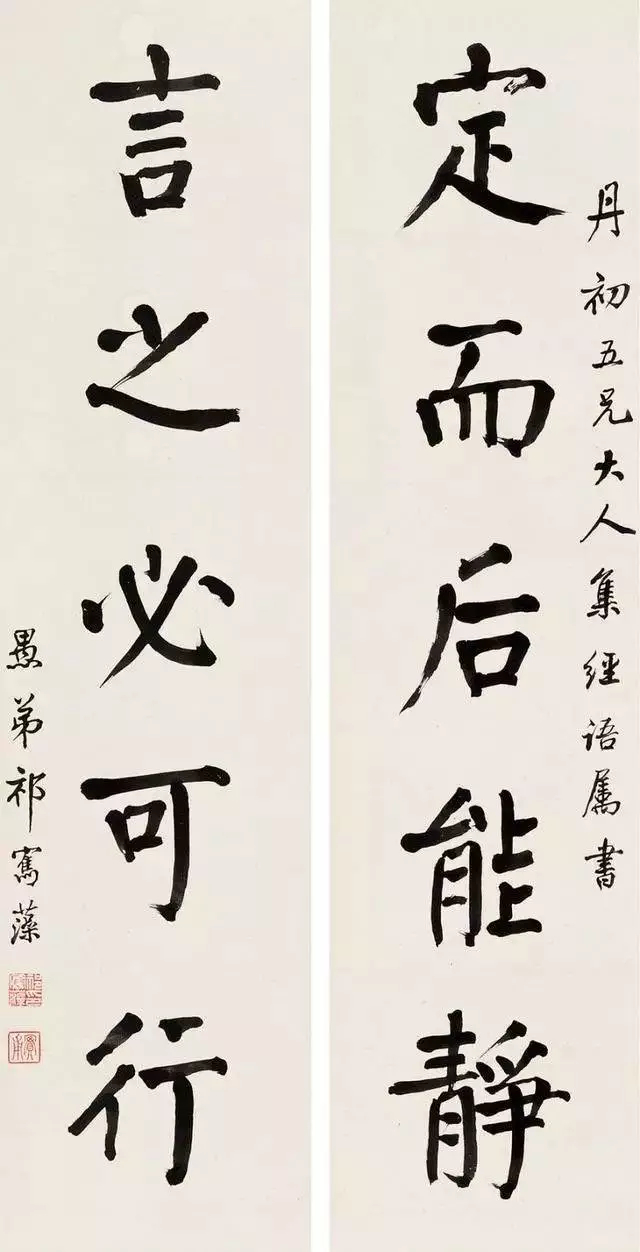 丹初五兄大人集經语属書
定而后能靜
言之必可行
愚弟祁寯藻